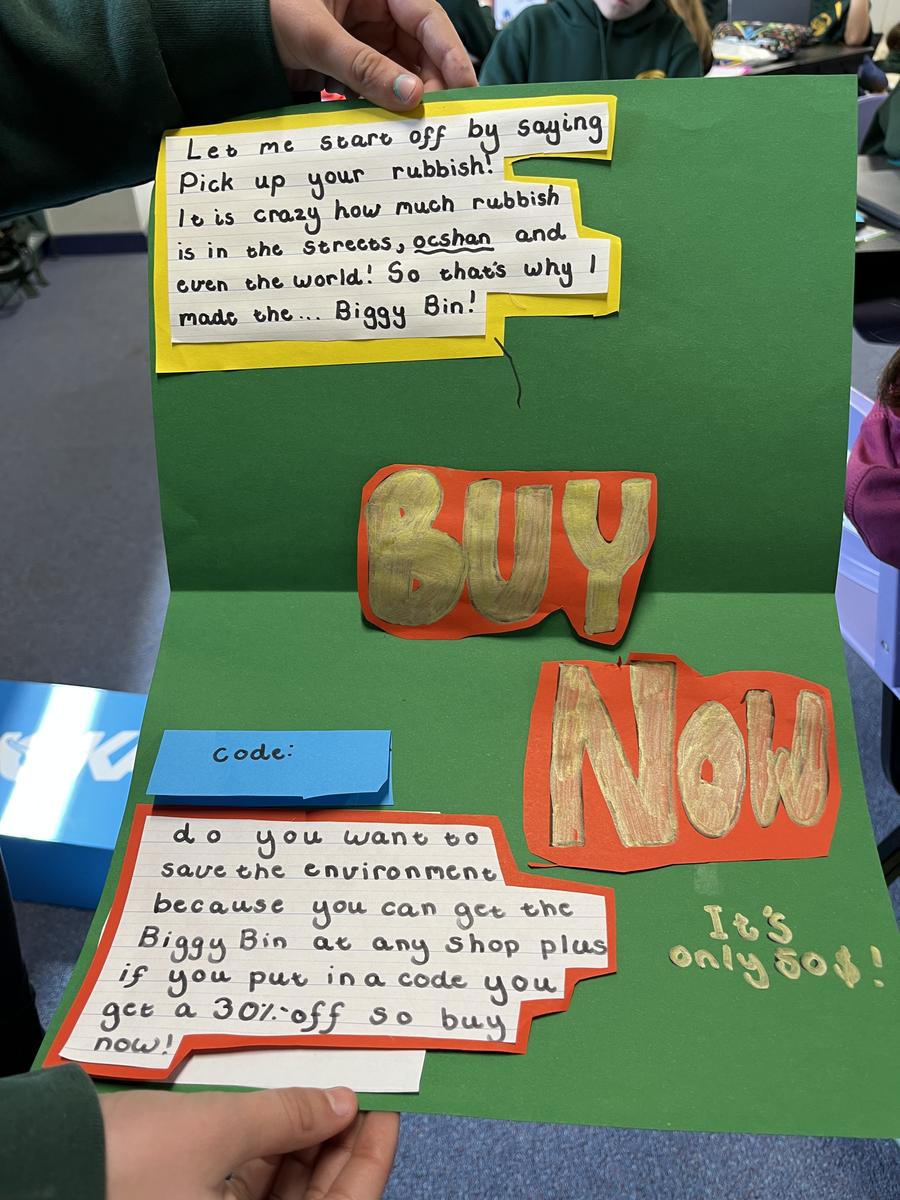 Let me start off by saying
Pick up your rubbish!
It is crazy how much rubbish
is in the streets, ocshan and
even the world! So that's why I
made the... Biggy Bin!
BUY
NOW
code:
do you want to
save the environment
because you can get the
Biggy Bin at any shop plus
if you put in a code you
get a 30%-off so buy
now!
It's
only 50$!